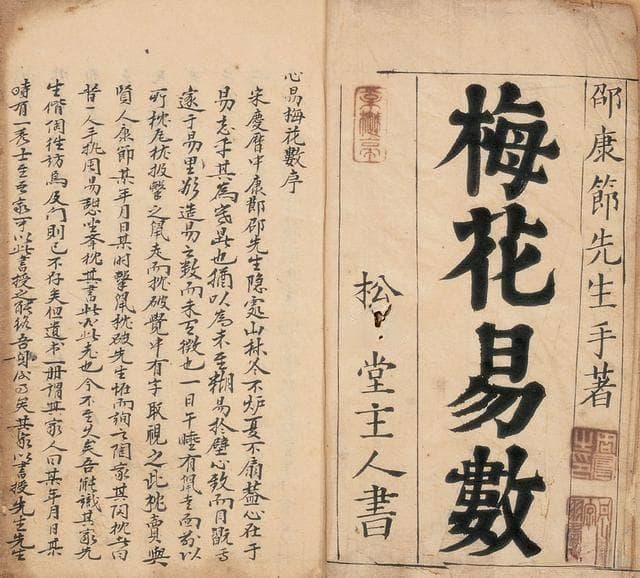 邵康節先生手著
梅花易數
松堂主人書
心易梅花數序
宋慶曆中康節邵先生隐處山林冬不炉夏不扇盖心在于
易忘乎其為寒暑也猶以為未至糊易於壁心致而目玩焉
邃于易里欲造易之数而未有徵也一日午睡有鼠走而前以
所枕瓦枕投擊之鼠走而枕破覺中有字取視之此枕賣與
賢人康節某年月日某時擊鼠枕破先生怪而詢之陶家其陶枕者曰
昔一人手执周易憩坐舉枕其書此必此老也今不至久矣吾能識其家先
生偕陶往访焉及门則已不存矣但遺书一册謂其家人曰某年月日某
時有一秀士至吾家可以此書授之能终吾身矣其家以書授先生先生